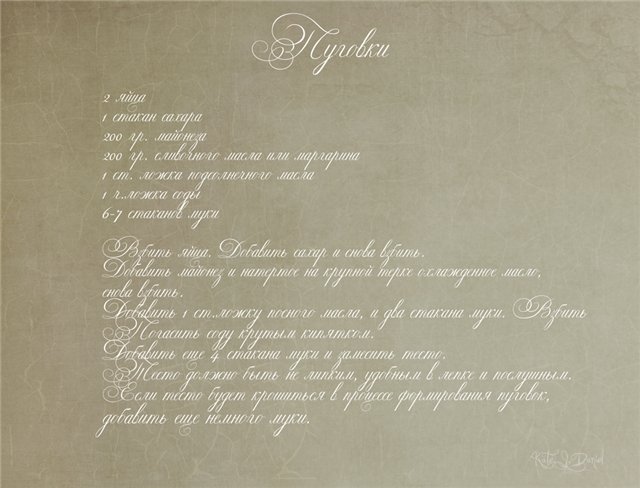 Пуговки
2 яйца
1 стакан сахара
200 гр. майонеза
200 гр. сливочного масла или маргарина
1 ст. ложка подсолнечного масла
1 ч.ложка соды
6-7 стаканов муки
Взбить яйца, Добавить сахар и снова взбить.
Добавить майонез и натертое на крупной терке охлажденное масло,
снова взбить.
Добавить 1 ст.ложку посного масла, и два стакана муки. Взбить
Погасить соду крутым кипятком.
Добавить еще 4 стакана муки и замесить тесто.
Тесто должно быть не липким, удобным в лепке и послушным.
Если тесто будет крошиться в процессе формирования пуговок,
добавить еще немного муки.